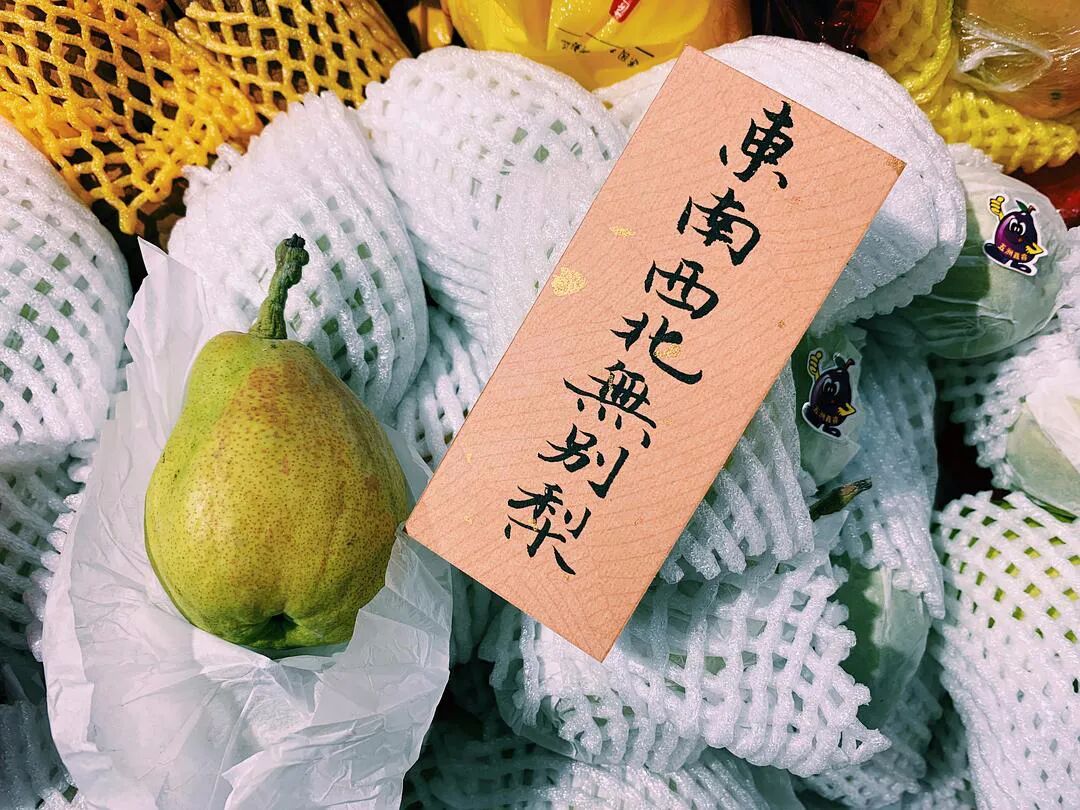 東南西北無別梨